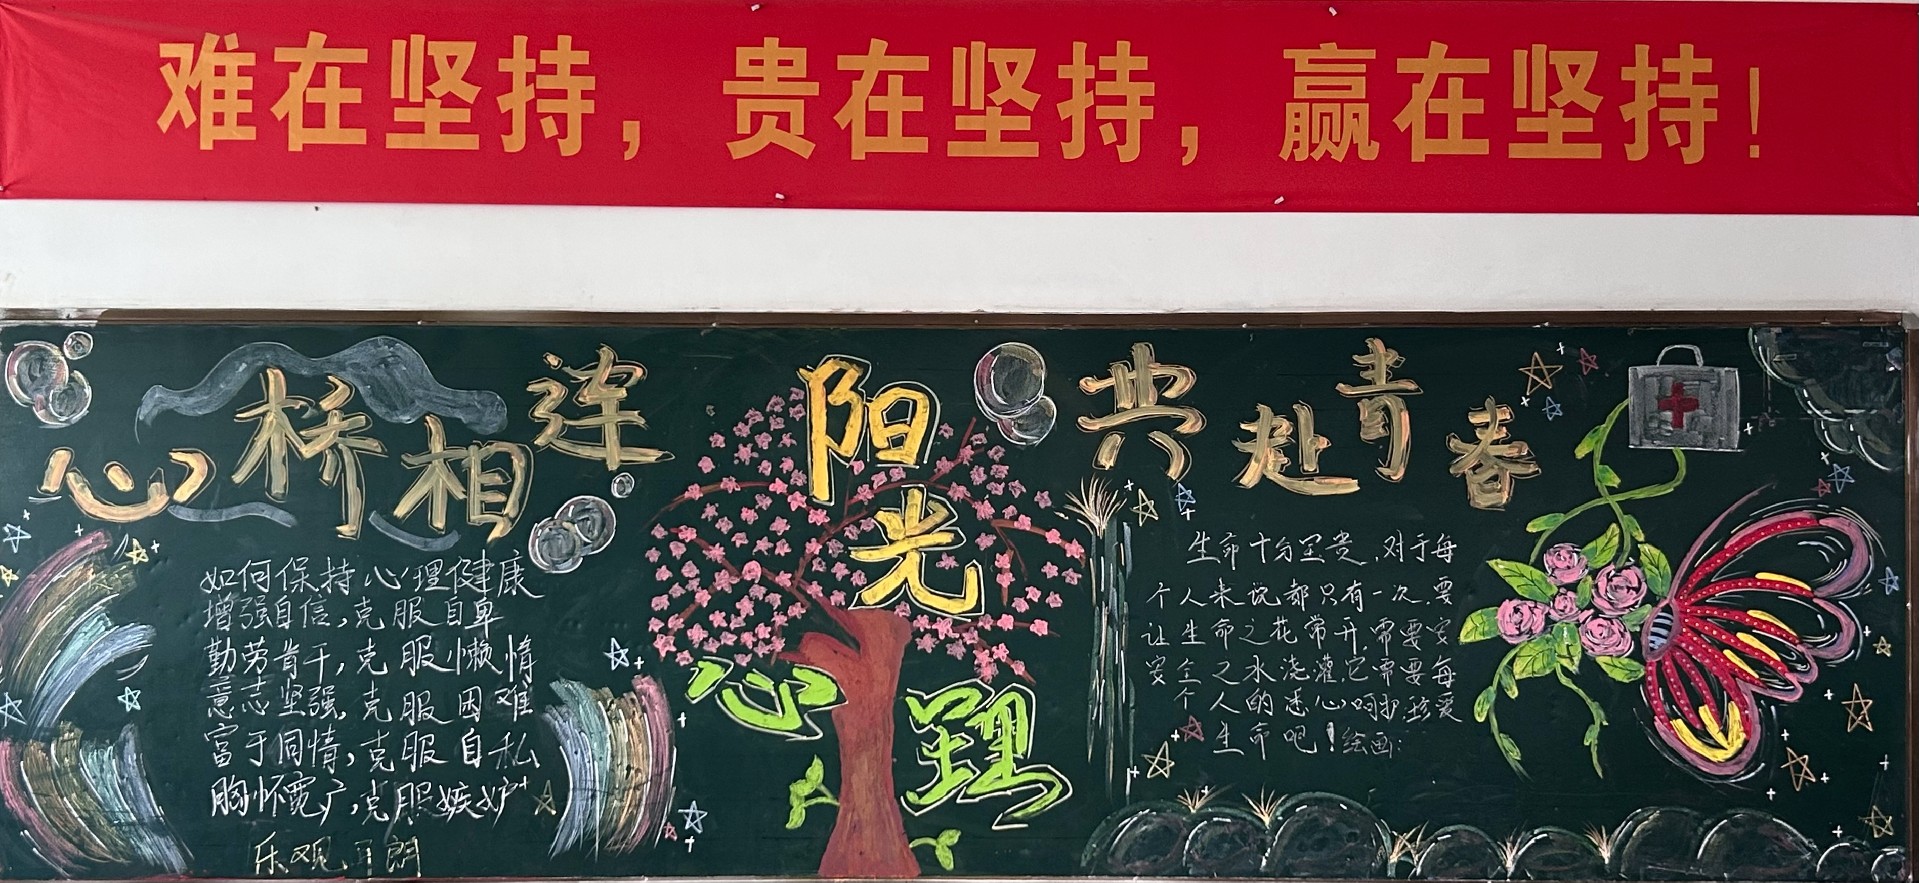 难在坚持，贵在坚持，赢在坚持！
心桥相连
阳光
心理
共赴青春
如何保持心理健康
增强自信,克服自卑
勤劳肯干,克服懒惰
意志坚强,克服困难
富于同情,克服自私
胸怀宽广,克服嫉妒
乐观开朗
生命十分宝贵,对于每
个人来说都只有一次.要
让生命之花常开,需要安
安全之水浇灌,它需要每
个人的悉心呵护.珍爱
生命吧!绘画: